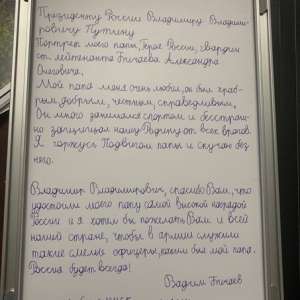 Президенту России Владимиру Владими-
ровичу Путину
Портрет моего папы, Героя России, гвардии
ст. лейтенанта Гничаева Александра
Олеговича.
Мой папа меня очень любил, он был храб-
рым, добрым, честным, справедливым,
Он много занимался спортом и бесстраш-
но защищал нашу Родину от всех врагов.
Я горжусь Подвигом папы и скучаю без
него.
Владимир Владимирович, спасибо Вам, что
удостоили моего папу самой высокой наградой
России и я хотел бы пожелать Вам и всей
нашей стране, чтобы в армии служили
такие смелые офицеры, каким был мой папа.
Россия будет всегда!
Вадим